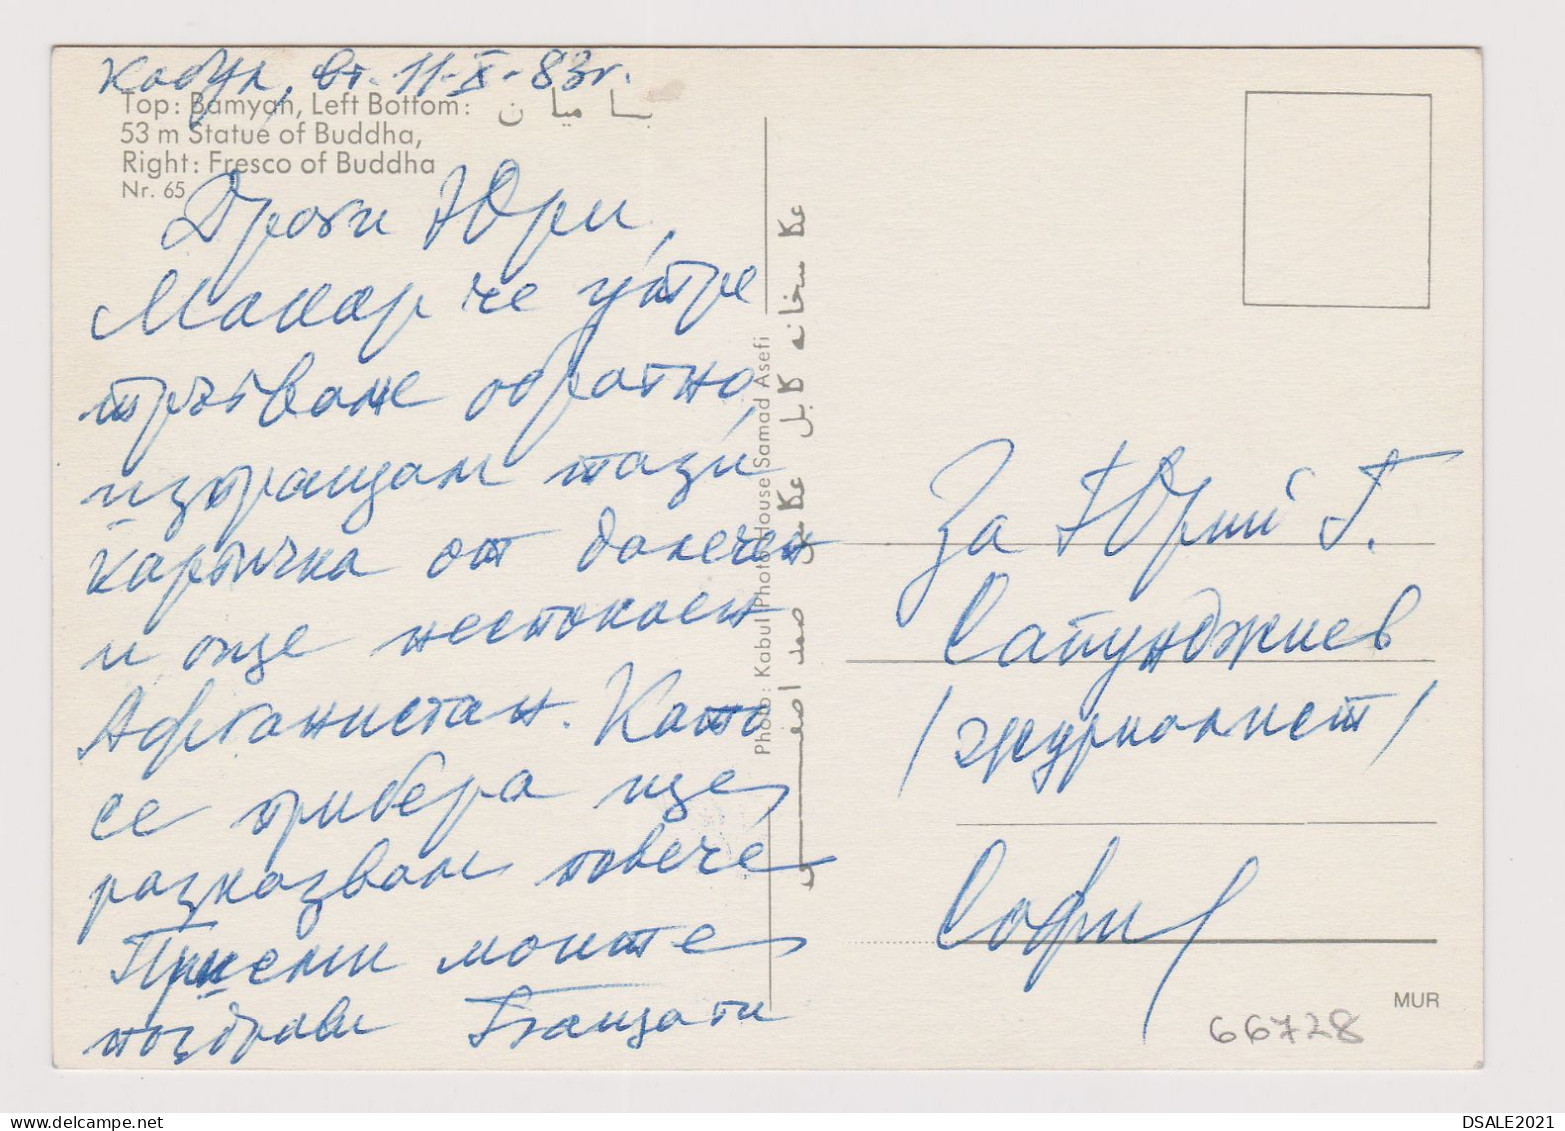 Кабул, вт. 11-X-83г.
Top: Bamyan, Left Bottom: بامیان
53 m Statue of Buddha,
Right: Fresco of Buddha
Nr. 65
Драги Юри,
Макар че утре
тръгваме обратно,
изпращам тази
картичка от далечен
и още неспокоен
Афганистан. Като
се прибера ще
разказвам повече
Приеми моите
поздрави Бащата ти
Photo: Kabul Photo House Samad Asefi
عکاسخانه کابل عکاس صمد آصفی
За Юрий Г.
Сапунджиев
/журналист/
София
MUR
66728
DSALE2021